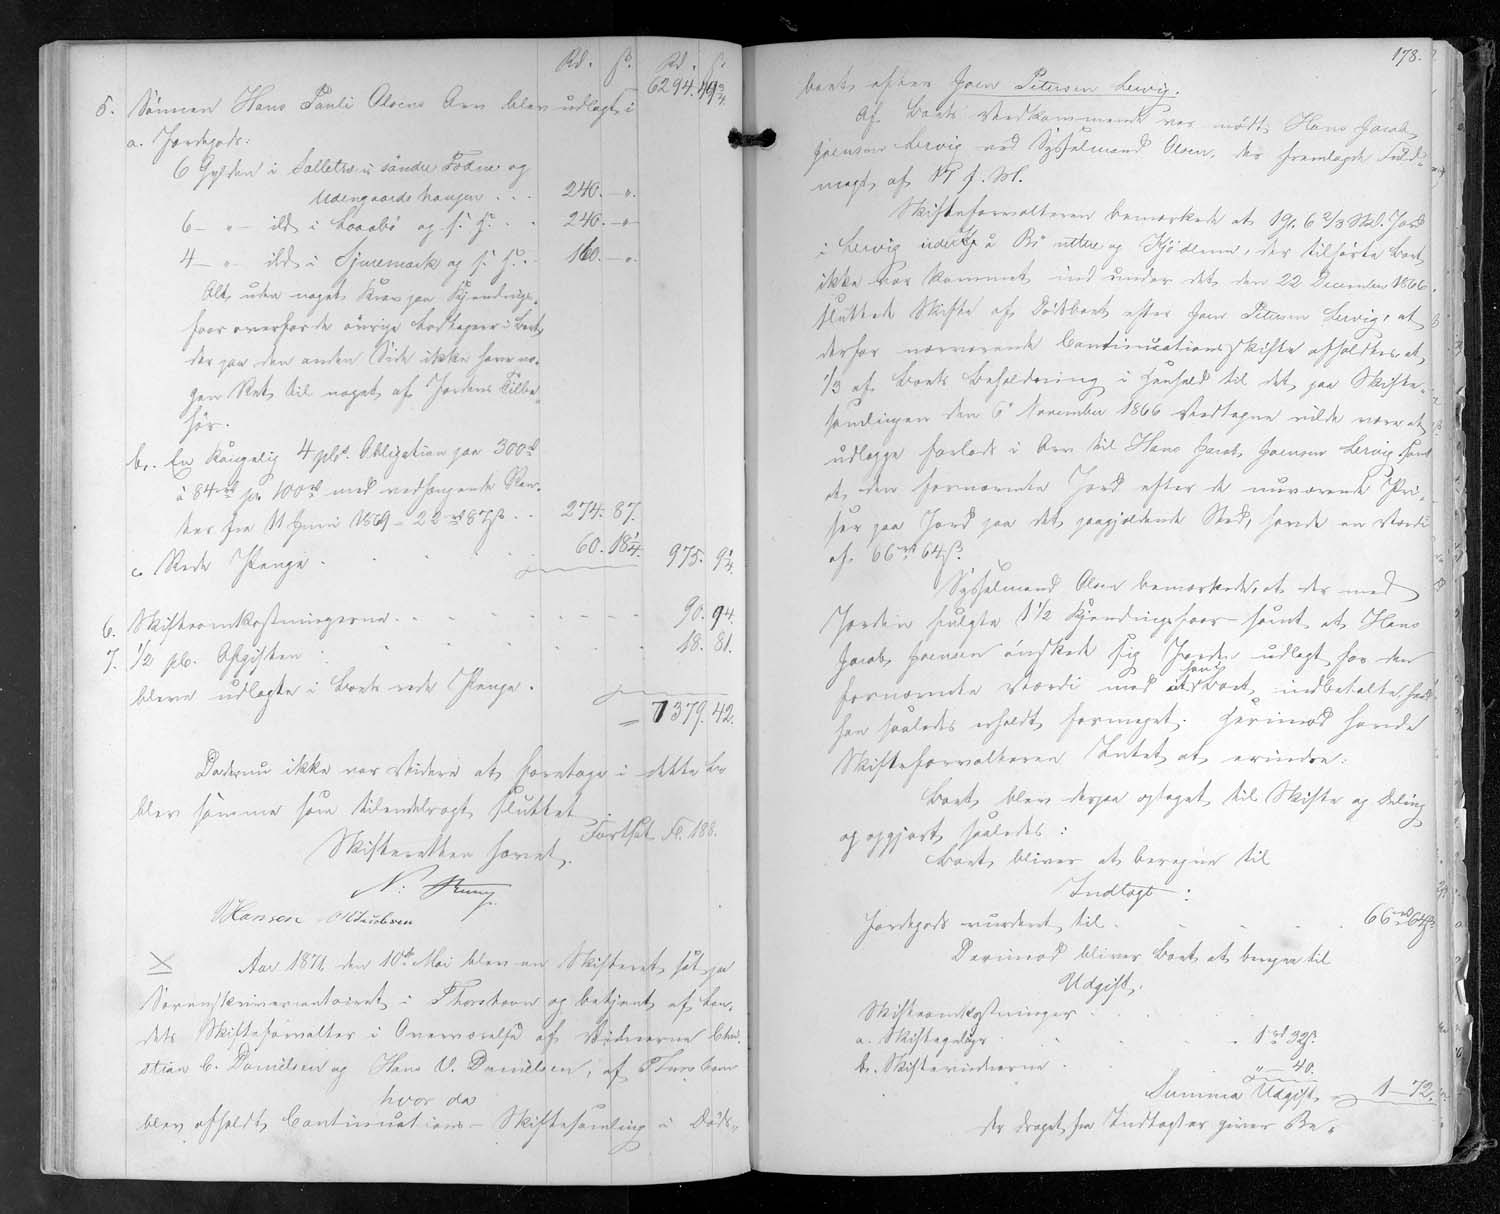 Rd. ß. Rd. ß.
6294. 49 3/4.
5. Sönnen Hans Pauli Olsens Arv blev udlagt i
a. Jordegods:
6 Gylden i Salletrö i söndre Fodne og
Udengaardshaugen . . . 240. — „.
6 — „ — ibd. i og s. H. . . 240. — „
4 — „ — ibd. i og s. H. . . 160. — „.
Alt uden noget Krav paa Kjendings-
faar overfor de övrige Lodtagere i Boet,
der paa den anden Side ikke have no-
gen Ret til noget af Jordens Tilbe-
hör.
b. En Kongelig 4 pCt. Obligation paa 300 rd
à 84 rd pr. 100 rd med vedhængende Ren-
ter fra 11 Juni 1869 = 22 rd 87 ß . . 274. 87.
c. Rede Penge . . . 60. 18 1/4. 975. 9 1/4.
6. Skifteomkostningerne . . . 90. 94.
7. 1/2 pCt. Afgiften . . . 18. 81.
bleve udlagte i Boets rede Penge.
= 7379. 42.
Da der nu ikke var videre at foretage i dette Bo
blev samme som tilendebragt sluttet.
Fortsat Fo. 188.
Skifteretten hævet.
N:
Hansen Jacobsen
X Aar 1871 den 10de Mai blev en Skifteret sat paa
Sorenskrivercontoiret i Thorshavn og betjent af Lan-
dets Skifteforvalter i Overværelse af Vidnerne Chri-
stian C. Danielsen og Hans V. Danielsen, af Thorshavn
hvor da
blev afholdt Continuations-Skiftesamling i Döds-
178.
boet efter Joen Petersen Lervig.
Af Boets Vedkommende var mödt Hans Jacob
Joensen Lervig ved Sysselmand Olsen, der fremlagde Fuld-
magt af 17 f. M.
Skifteforvalteren bemærkede at 1 G. 6 2/3 Skl. Jord
i Lervig à Bö nttre og Kjödlerne, der tilhörte Boet
ikke var kommet ind under det den 22 December 1866
sluttede Skifte af Dödsboet efter Joen Petersen Lervig, at
derfor nærværende Continuationsskifte afholdtes, at
1/3 af Boets Beholdning i Henhold til det paa Skifte-
samlingen den 6te November 1866 Vedtagne vilde være at
udlægge forlods i Arv til Hans Jacob Joensen Lervig samt
at den fornævnte Jord efter de nuværende Pri-
ser paa Jord paa det paagjældende Sted, havde en Værdi
af 66 rd 64 ß.
Sysselmand Olsen bemærkede, at der med
Jorden fulgte 1 1/2 Kjendingsfaar samt at Hans
Jacob Joensen önskede sig Jorden udlagt for den
fornævnte Værdi mod at han i Boet indbetalte hvad
han saaledes erholdt formeget. Herimod havde
Skifteforvalteren Intet at erindre.
Boet blev derpaa optaget til Skifte og Deling
og opgjort saaledes:
Boet bliver at beregne til
Indtægt:
Jordegods vurderet til . . . 66 rd 64 ß.
Derimod bliver Boet at beregne til
Udgift.
Skifteomkostninger . . .
a. Skiftegebyr . . . 1 rd 32 ß.
b. Skiftevidnerne . . . „ — 40.
Summa Udgift 1 — 72.
der draget fra Indtægter giver Be-